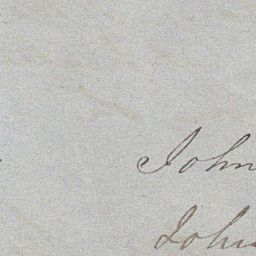 John
John